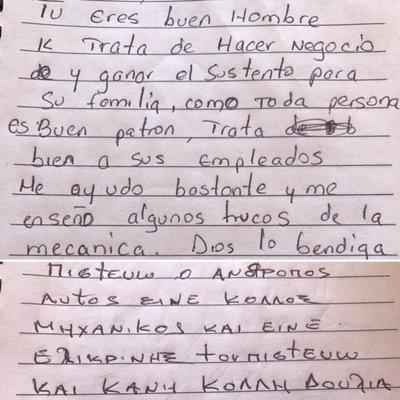 TU eres buen Hombre
K Trata de Hacer Negocio
y ganar el Sustento para
Su familia, como Toda persona
es Buen patron, Trata
bien a sus Empleados
Me ayudo bastante y me
enseño algunos trucos de la
mecanica. Dios lo bendiga
ΠΙΣΤΕΥΩ Ο ΑΝΘΡΟΠΟΣ
ΑυΤΟΣ ΕΙΝΕ ΚΟΛΛΟΣ
ΜΗΧΑΝΙΚΟΣ ΚΑΙ ΕΙΝΕ
ΕΛΙΚΡΙΝΗΣ ΤΟΥ ΠΙΣΤΕΥΩ
ΚΑΙ ΚΑΝΗ ΚΟΛΛΗ ΔΟΥΛΙΑ